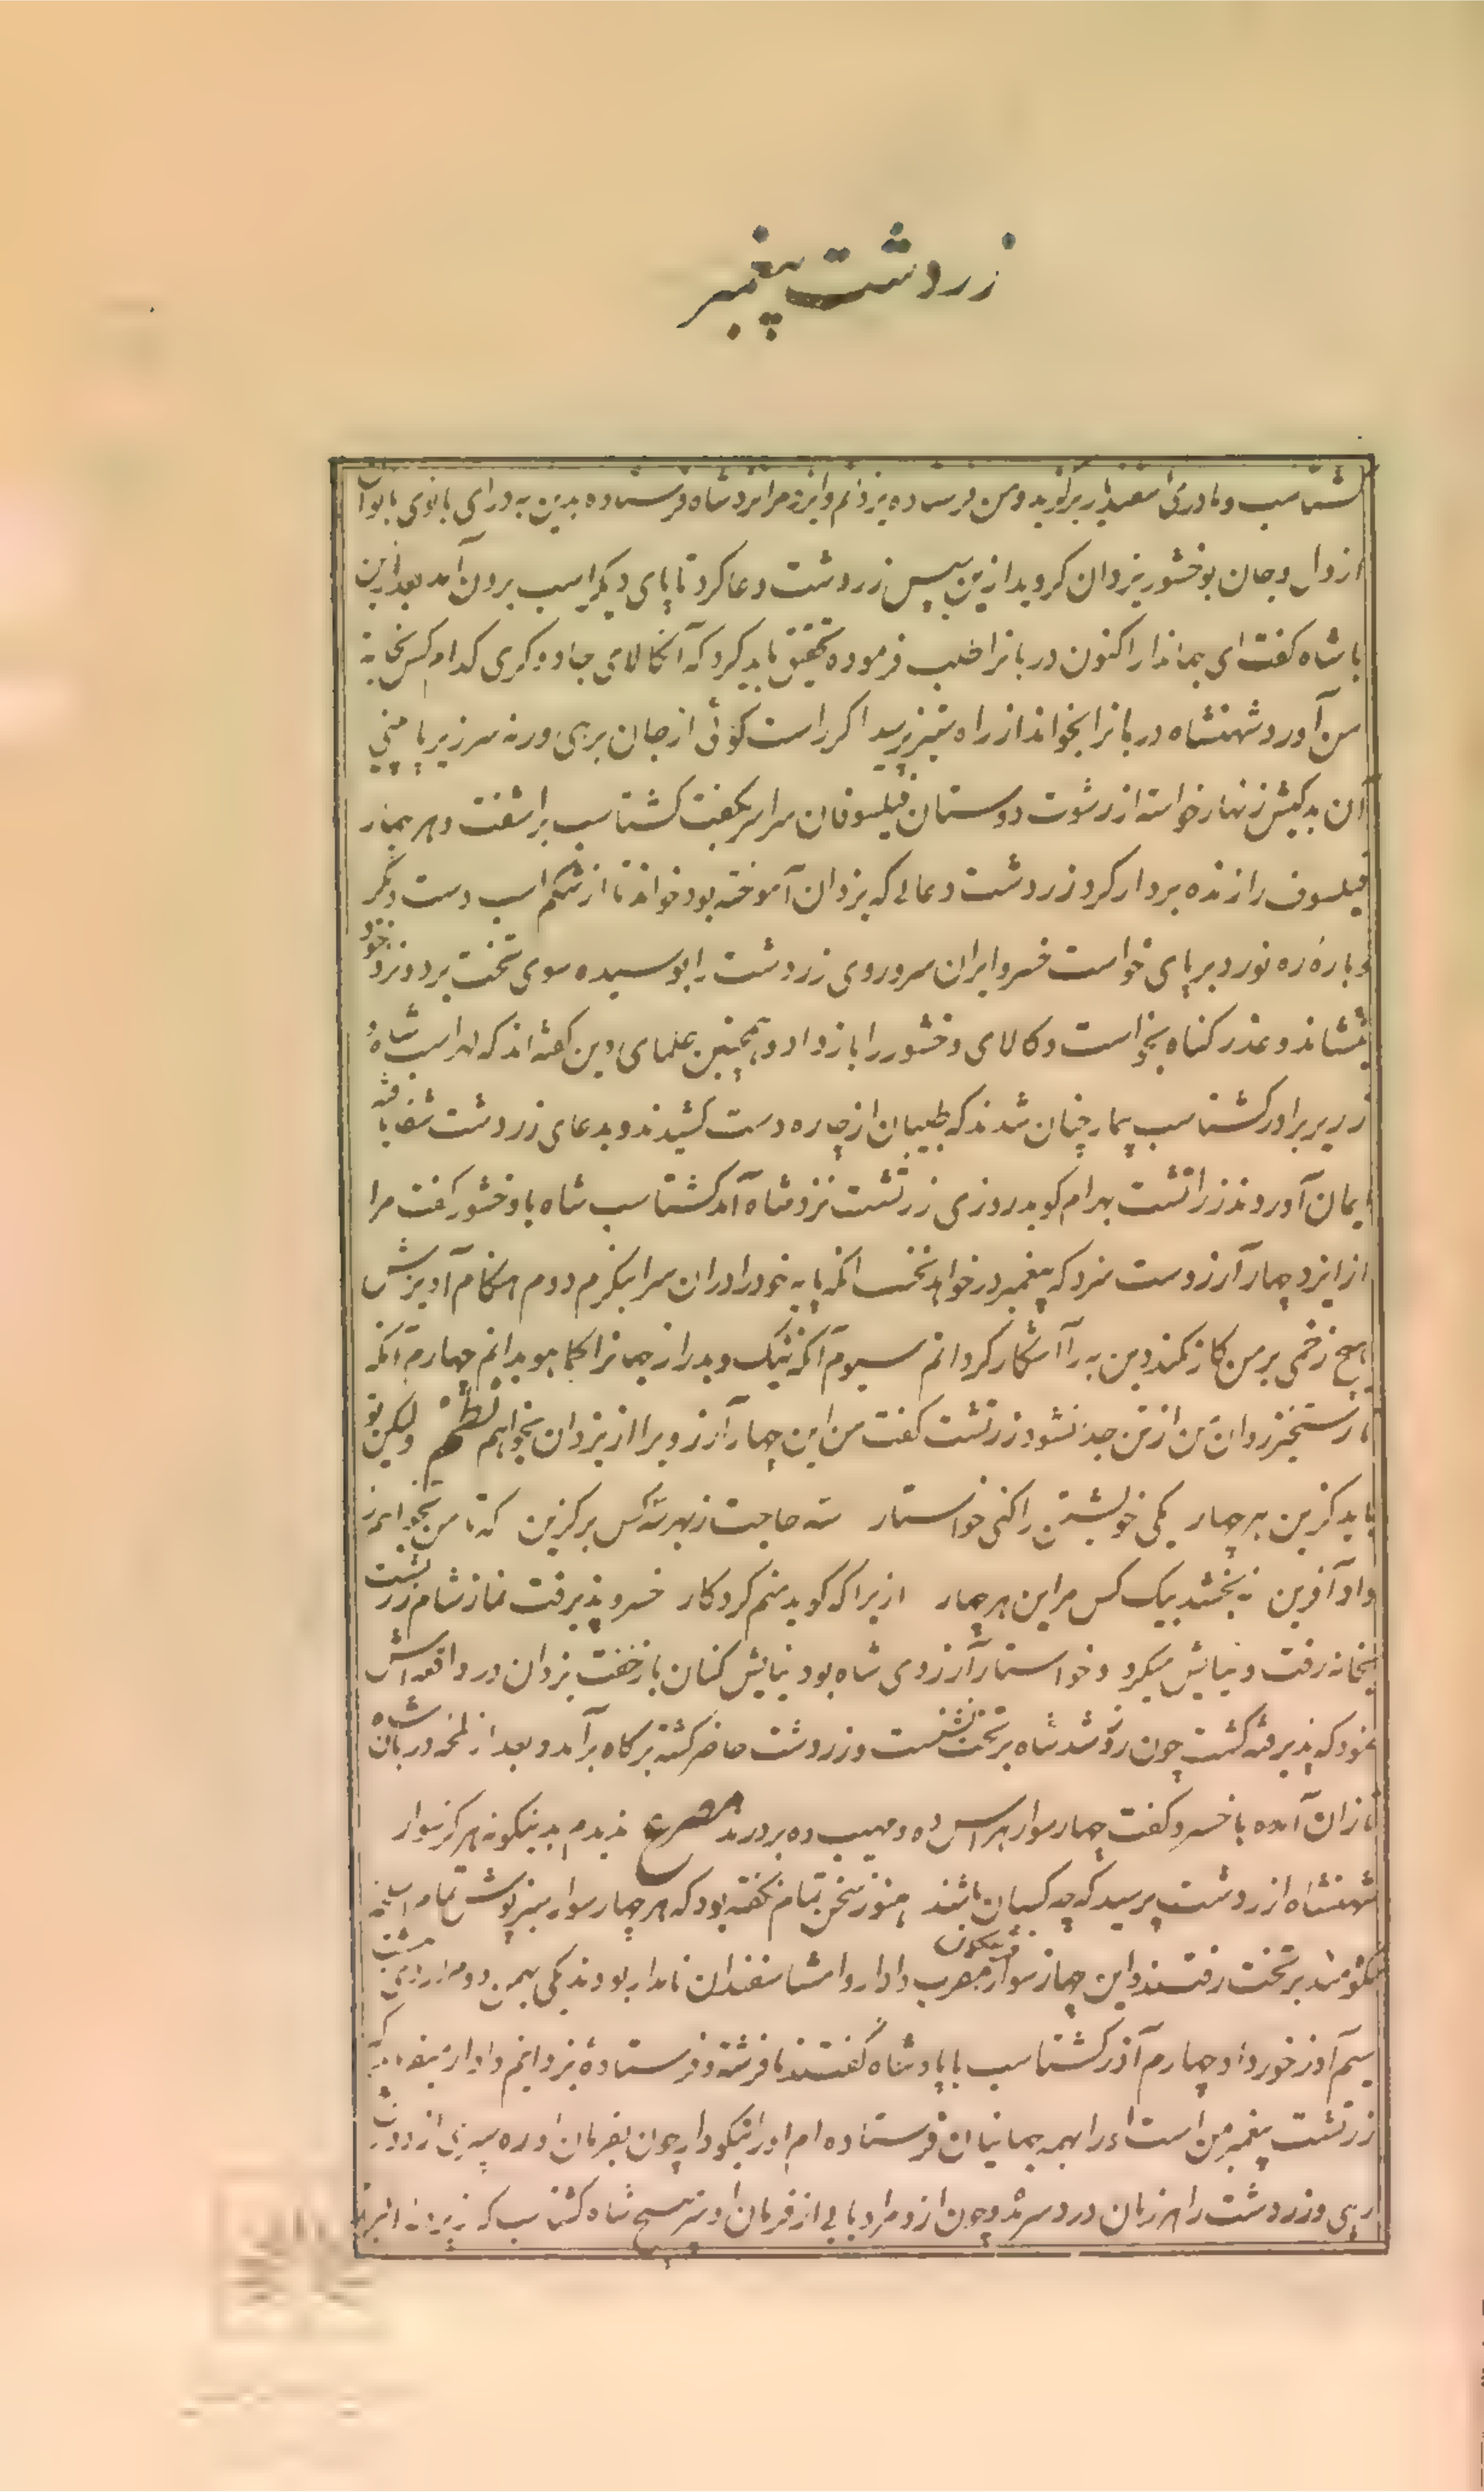 زردشت پیغمبر
کشتاسب و مادر اسفندیار برگزید و من فرستاده یزدانم و ایزد مرا نزد شاه فرستاده بدین به در آی بانوی بانوان
از دل و جان بوخشور یزدان کروید ازین سپس زردشت دعا کرد تا پای دیکر اسب برون آمد بعد ازین
با شاه کفت ای جهاندار اکنون دربانرا طلب فرموده تحقیق باید کرد که آن کالای جادوکری کدام کس بخانه
من آورد شهنشاه دربانرا بخواند از راه ستیز پرسید اکر راست کوئی از جان برهی ورنه سر زیر پا بینی
آن بدکیش زنهار خواسته از رشوت و دوستان فیلسوفان سراسر بکفت کشتاسب برآشفت و هر چهار
فیلسوف را زنده بردار کرد زردشت دعائی که یزدان آموخته بود خواند تا از شکم اسب دست دیکر
و باره ره نورد بر پای خواست خسرو ایران سر و روی زردشت را بوسیده سوی تخت برد و نزد خود
بنشاند و عذر کناه بخواست و کالای وخشور را باز داد و همچنین علمای دین کفته اند که لهراسب شاه و
زریر برادر کشتاسب بیمار چنان شدند که طبیبان از چاره دست کشیدند و بدعای زردشت شفا یافته
ایمان آوردند زراتشت بهرام کوید روزی زرتشت نزد شاه آمد کشتاسب شاه با وخشور کفت مرا
از ایزد چهار آرزوست سزد که پیغمبر درخواهد نخست آنکه پایه خود را در آن سرا بنکرم دوم هنکام آویزش
هیچ زخمی بر من کار نکند و دین به را آشکار کردانم سیوم آنکه نیک و بد راز جهانرا کما هو بدانم چهارم آنکه
تا رستخیز روان من از تن جدا نشود زرتشت کفت من این چهار آرزو را از یزدان بخواهم نظم ولیکن تو
باید کزین هر چهار یکی خویشتن را کنی خواستار سه حاجت ز بهر سه کس بر کزین که تا من بخواهم ز
داد آفرین نه بخشد بیک کس مر این هر چهار ازیرا که کوید منم کردکار خسرو پذیرفت نماز شام زرتشت
بخانه رفت و نیایش میکرد و خواستار آرزوی شاه بود نیایش کنان باز خفت یزدان در واقعه اش
نمود که پذیرفته کشت چون روز شد شاه بر تخت نشست و زردشت حاضر کشته بر کاه برآمد و بعد از لمحه دربان شاه
تازان آمده با خسرو کفت چهار سوار هراس ده و مهیب ده بر درند مصرع ندیدم بدینکونه هرکز سوار
شهنشاه از زردشت پرسید که چه کسان باشند هنوز سخن تمام نکفته بود که هر چهار سوار سبزپوش تمام اسلحه
شکوهمند بر تخت رفتند و این چهار سوار مقرب دادار و امشاسفندان نامدار بودند یکی بهمن دوم اردیبهشت
سیم آذر خورداد و چهارم آذر کشتاسب با پادشاه کفتند ما فرشته و فرستادۀ یزدانیم دادار میفرماید که
زرتشت پیغمبر من است او را بهمه جهانیان فرستاده ام او را نیکو دار چون بفرمان او ره سپری از دوزخ
رهی و زردشت را هرزمان در دسر مده و چون ازو مراد یابی از فرمان او سر مپیچ شاه کشتاسب که